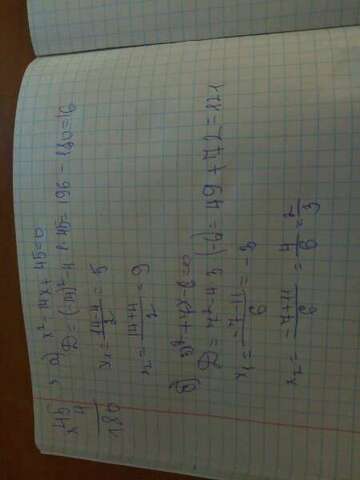 а) x² - 14x + 45 = 0
D = (-14)² - 4 · 45 = 196 - 180 = 16
x₁ = (14-4)/2 = 5
x₂ = (14+4)/2 = 9
б) 3y² + 7x - 6 = 0
D = 7² - 4 · 3 · (-6) = 49 + 72 = 121
x₁ = (-7-11)/6 = -3
x₂ = (-7+11)/6 = 4/6 = 2/3
×45
4
180